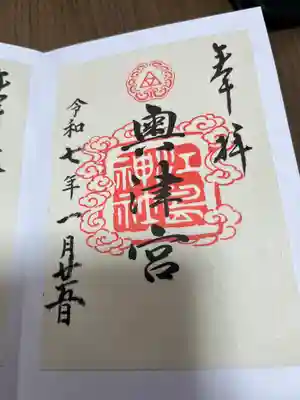 奉拝
奥津宮
江島神社
令和七年一月廿五日